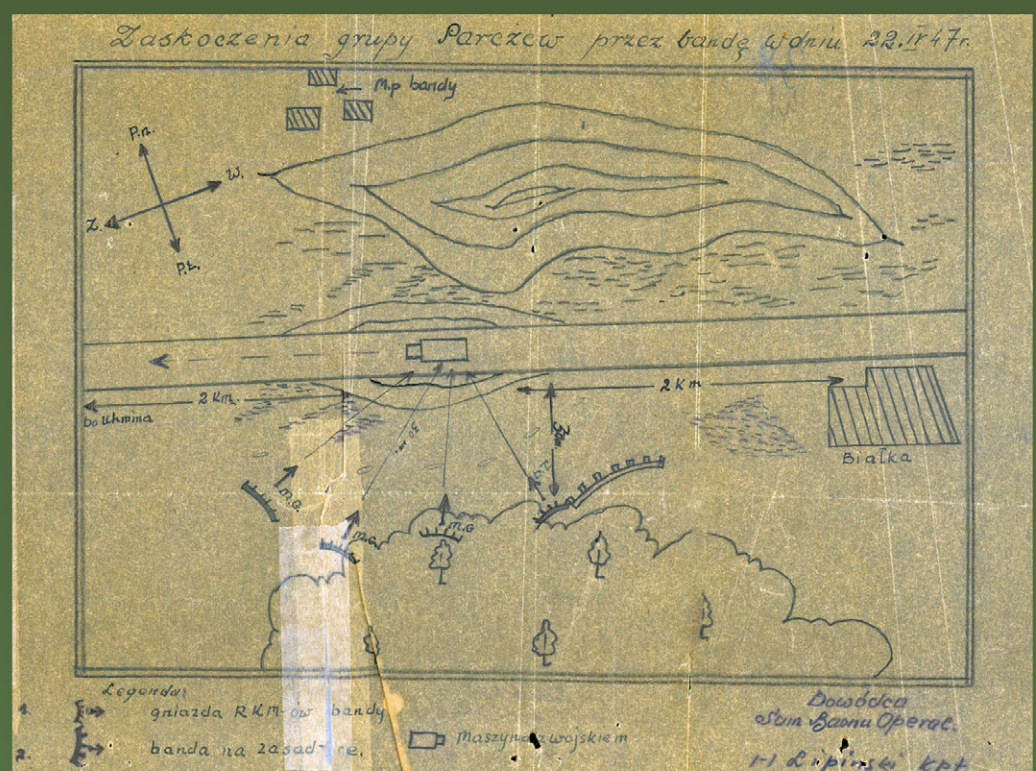 Zaskoczenia grupy Parczew przez bandę w dniu 22.IV 47r.
M.p bandy
P.n.
W.
Z.
P.ł.
2 Km.
2 Km
do Uhnina
30 m.
30m
Białka
m.G.
m.G.
m.G
Legenda:
1. gniazda RKM-ów bandy
2. banda na zasadzce,
Maszyna z wojskiem
Dowódca
Sam. Baonu Operac.
/-/ Lipiński kpt